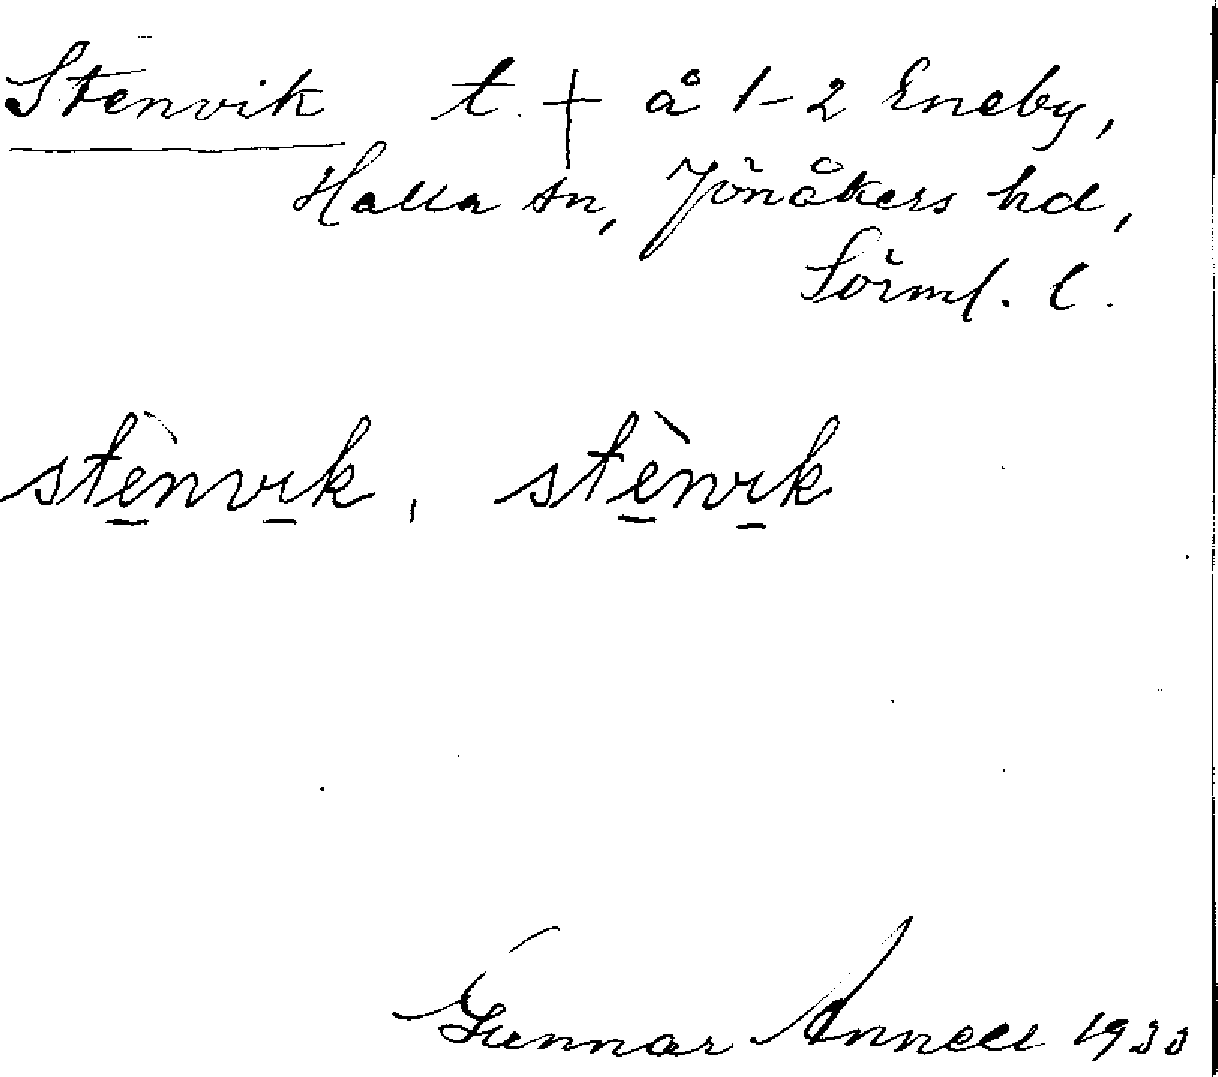 Stenvik t. + å 1-2 Eneby,
Halla sn, Jönåkers hd,
Sörml. l.
stènvik, stènvik
Gunnar Annell 1933